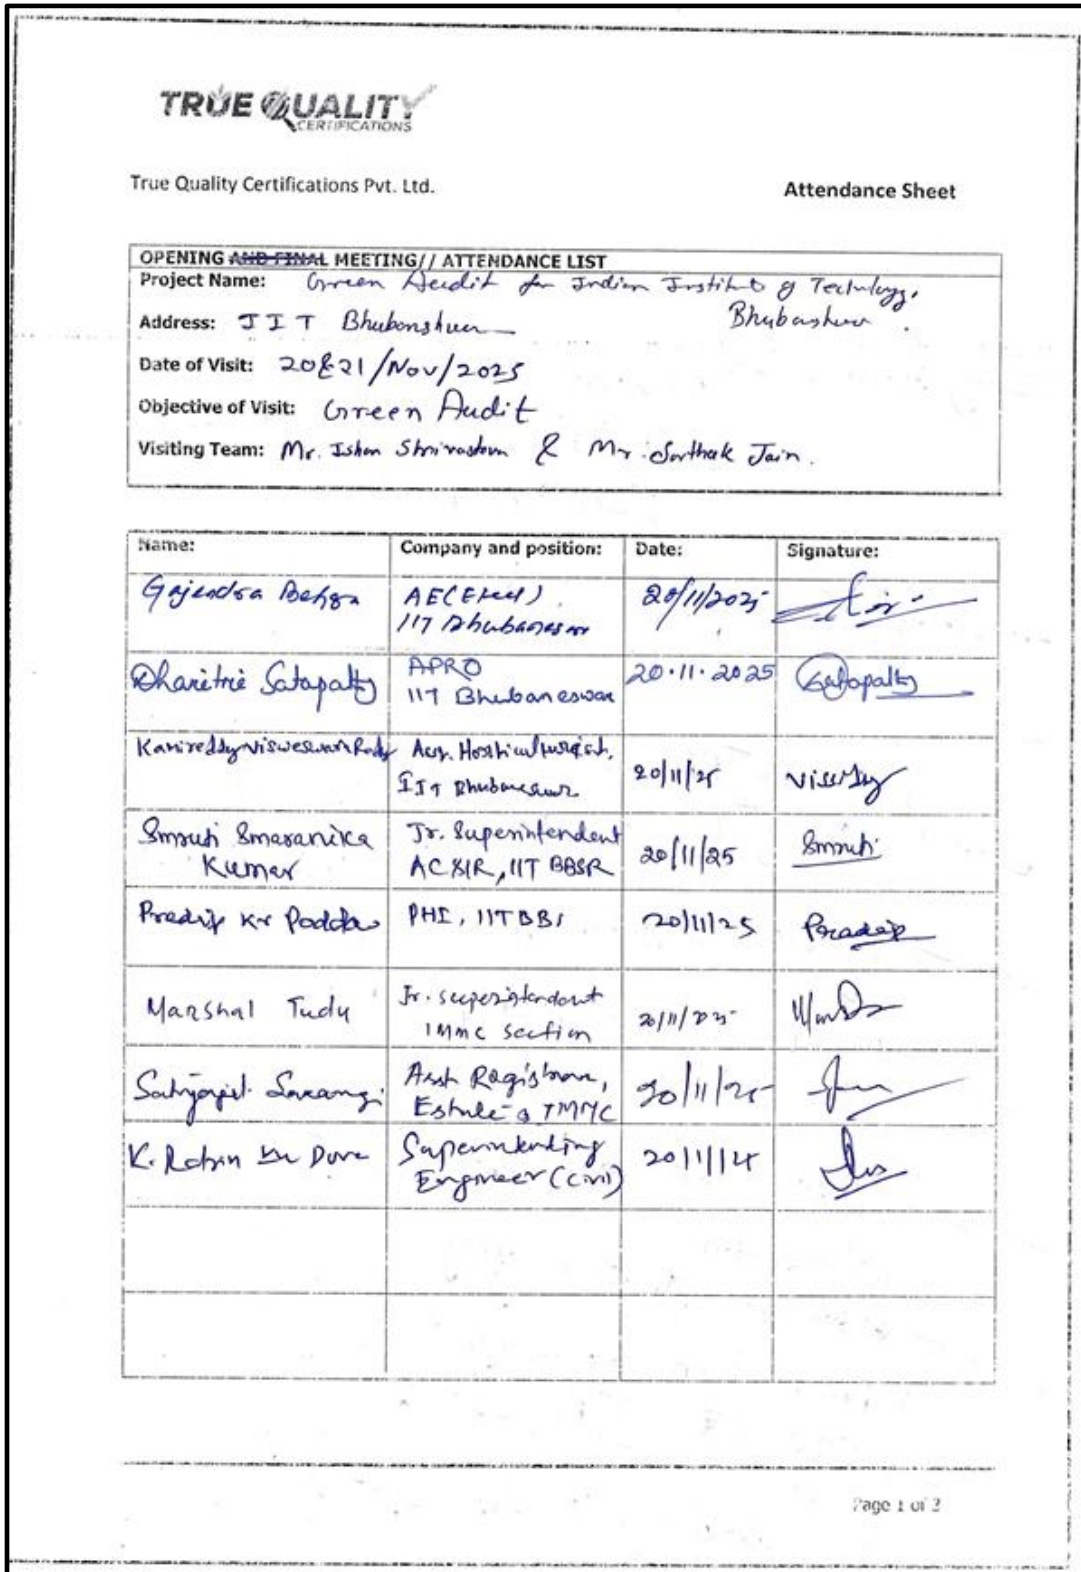 TRUE QUALITY
CERTIFICATIONS
True Quality Certifications Pvt. Ltd.
Attendance Sheet
OPENING AND FINAL MEETING// ATTENDANCE LIST
Project Name: Green Audit for Indian Institute of Technology,
Bhubaneshwar
Address: IIT Bhubaneshwar
Date of Visit: 20&21/Nov/2025
Objective of Visit: Green Audit
Visiting Team: Mr. Ishan Shrivastava & Mr. Sarthak Jain.
Name: Company and position: Date: Signature:
Gajendra Behera AE(Elect) 20/11/2025
IIT Bhubaneswar
Dharitrie Satapathy APRO 20.11.2025 Satapathy
IIT Bhubaneswar
Karireddy Visweswara Reddy Asst. Horticulturist, 20/11/25
IIT Bhubaneswar
Smruti Smaranika Jr. Superintendent 20/11/25 Smruti
Kumar AC&IR, IIT BBSR
Pradip Kr Poddar PHI, IITBBS 20/11/25 Pradip
Marshal Tudu Jr. Superintendent 20/11/25
IMMC Section
Satyajit Sarangi Asst Registrar, 20/11/25
Estate & IMMC
K. Superintending 20/11/
Engineer (Civil)
Page 1 of 2